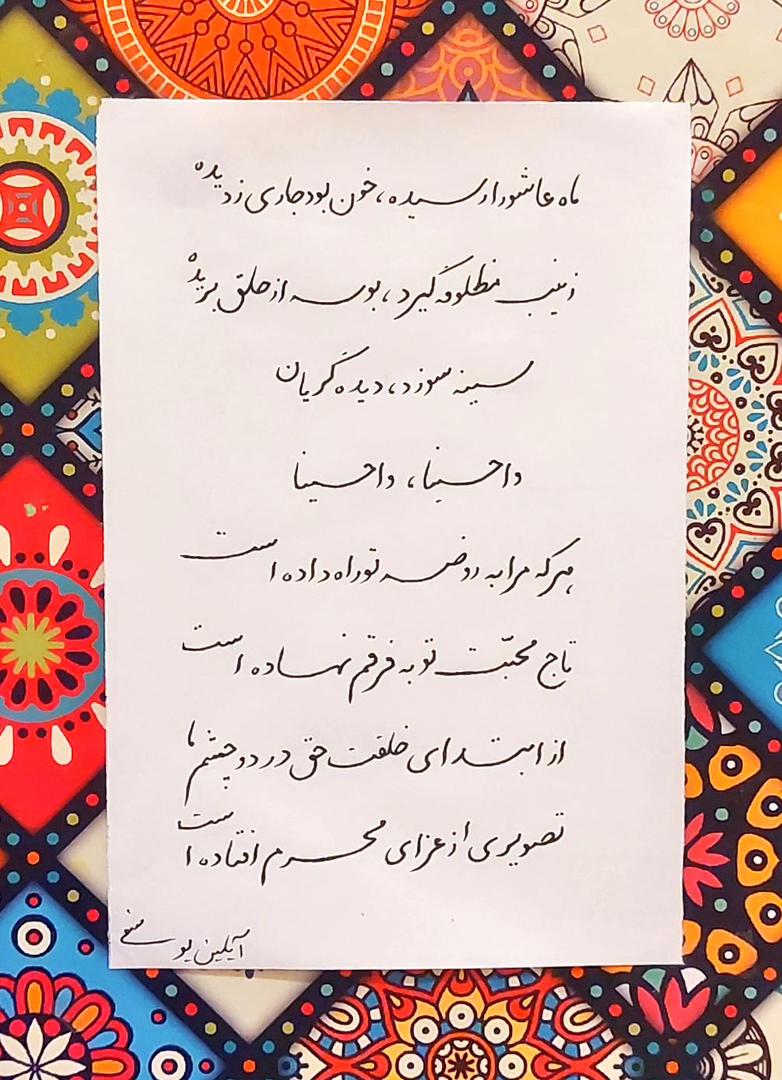 ماه عاشورا رسیده، خون بود جاری ز دیده
زینب مظلومه گیرد، بوسه از حلق بریده
سینه سوزد، دیده گریان
واحسینا، واحسینا
هرکه مرا به روضه تو راه داده است
تاج محبّت تو به فرقم نهاده است
از ابتدای خلقت حق در دو چشم ما
تصویری از عزای محرم افتاده است
آیلین یوسفی